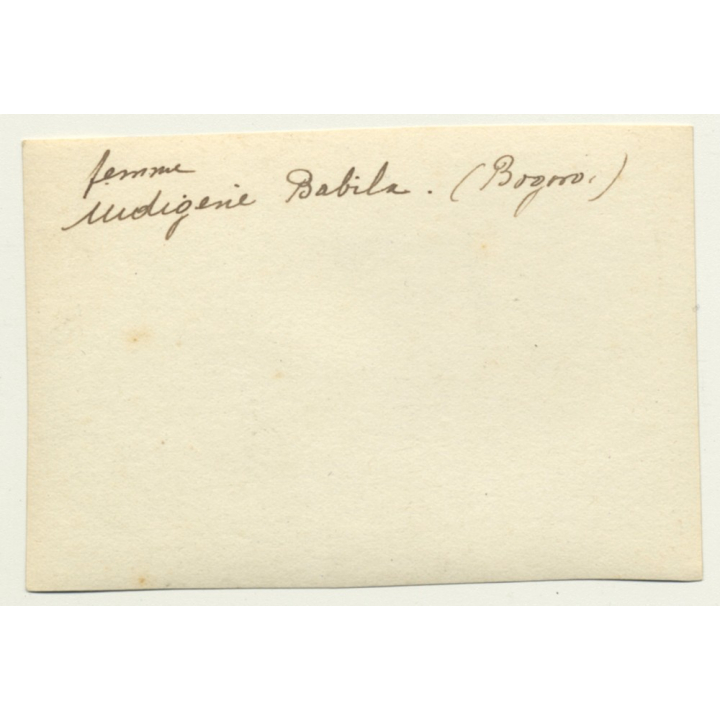 femme
Indigène Babila. (Bogoro.)